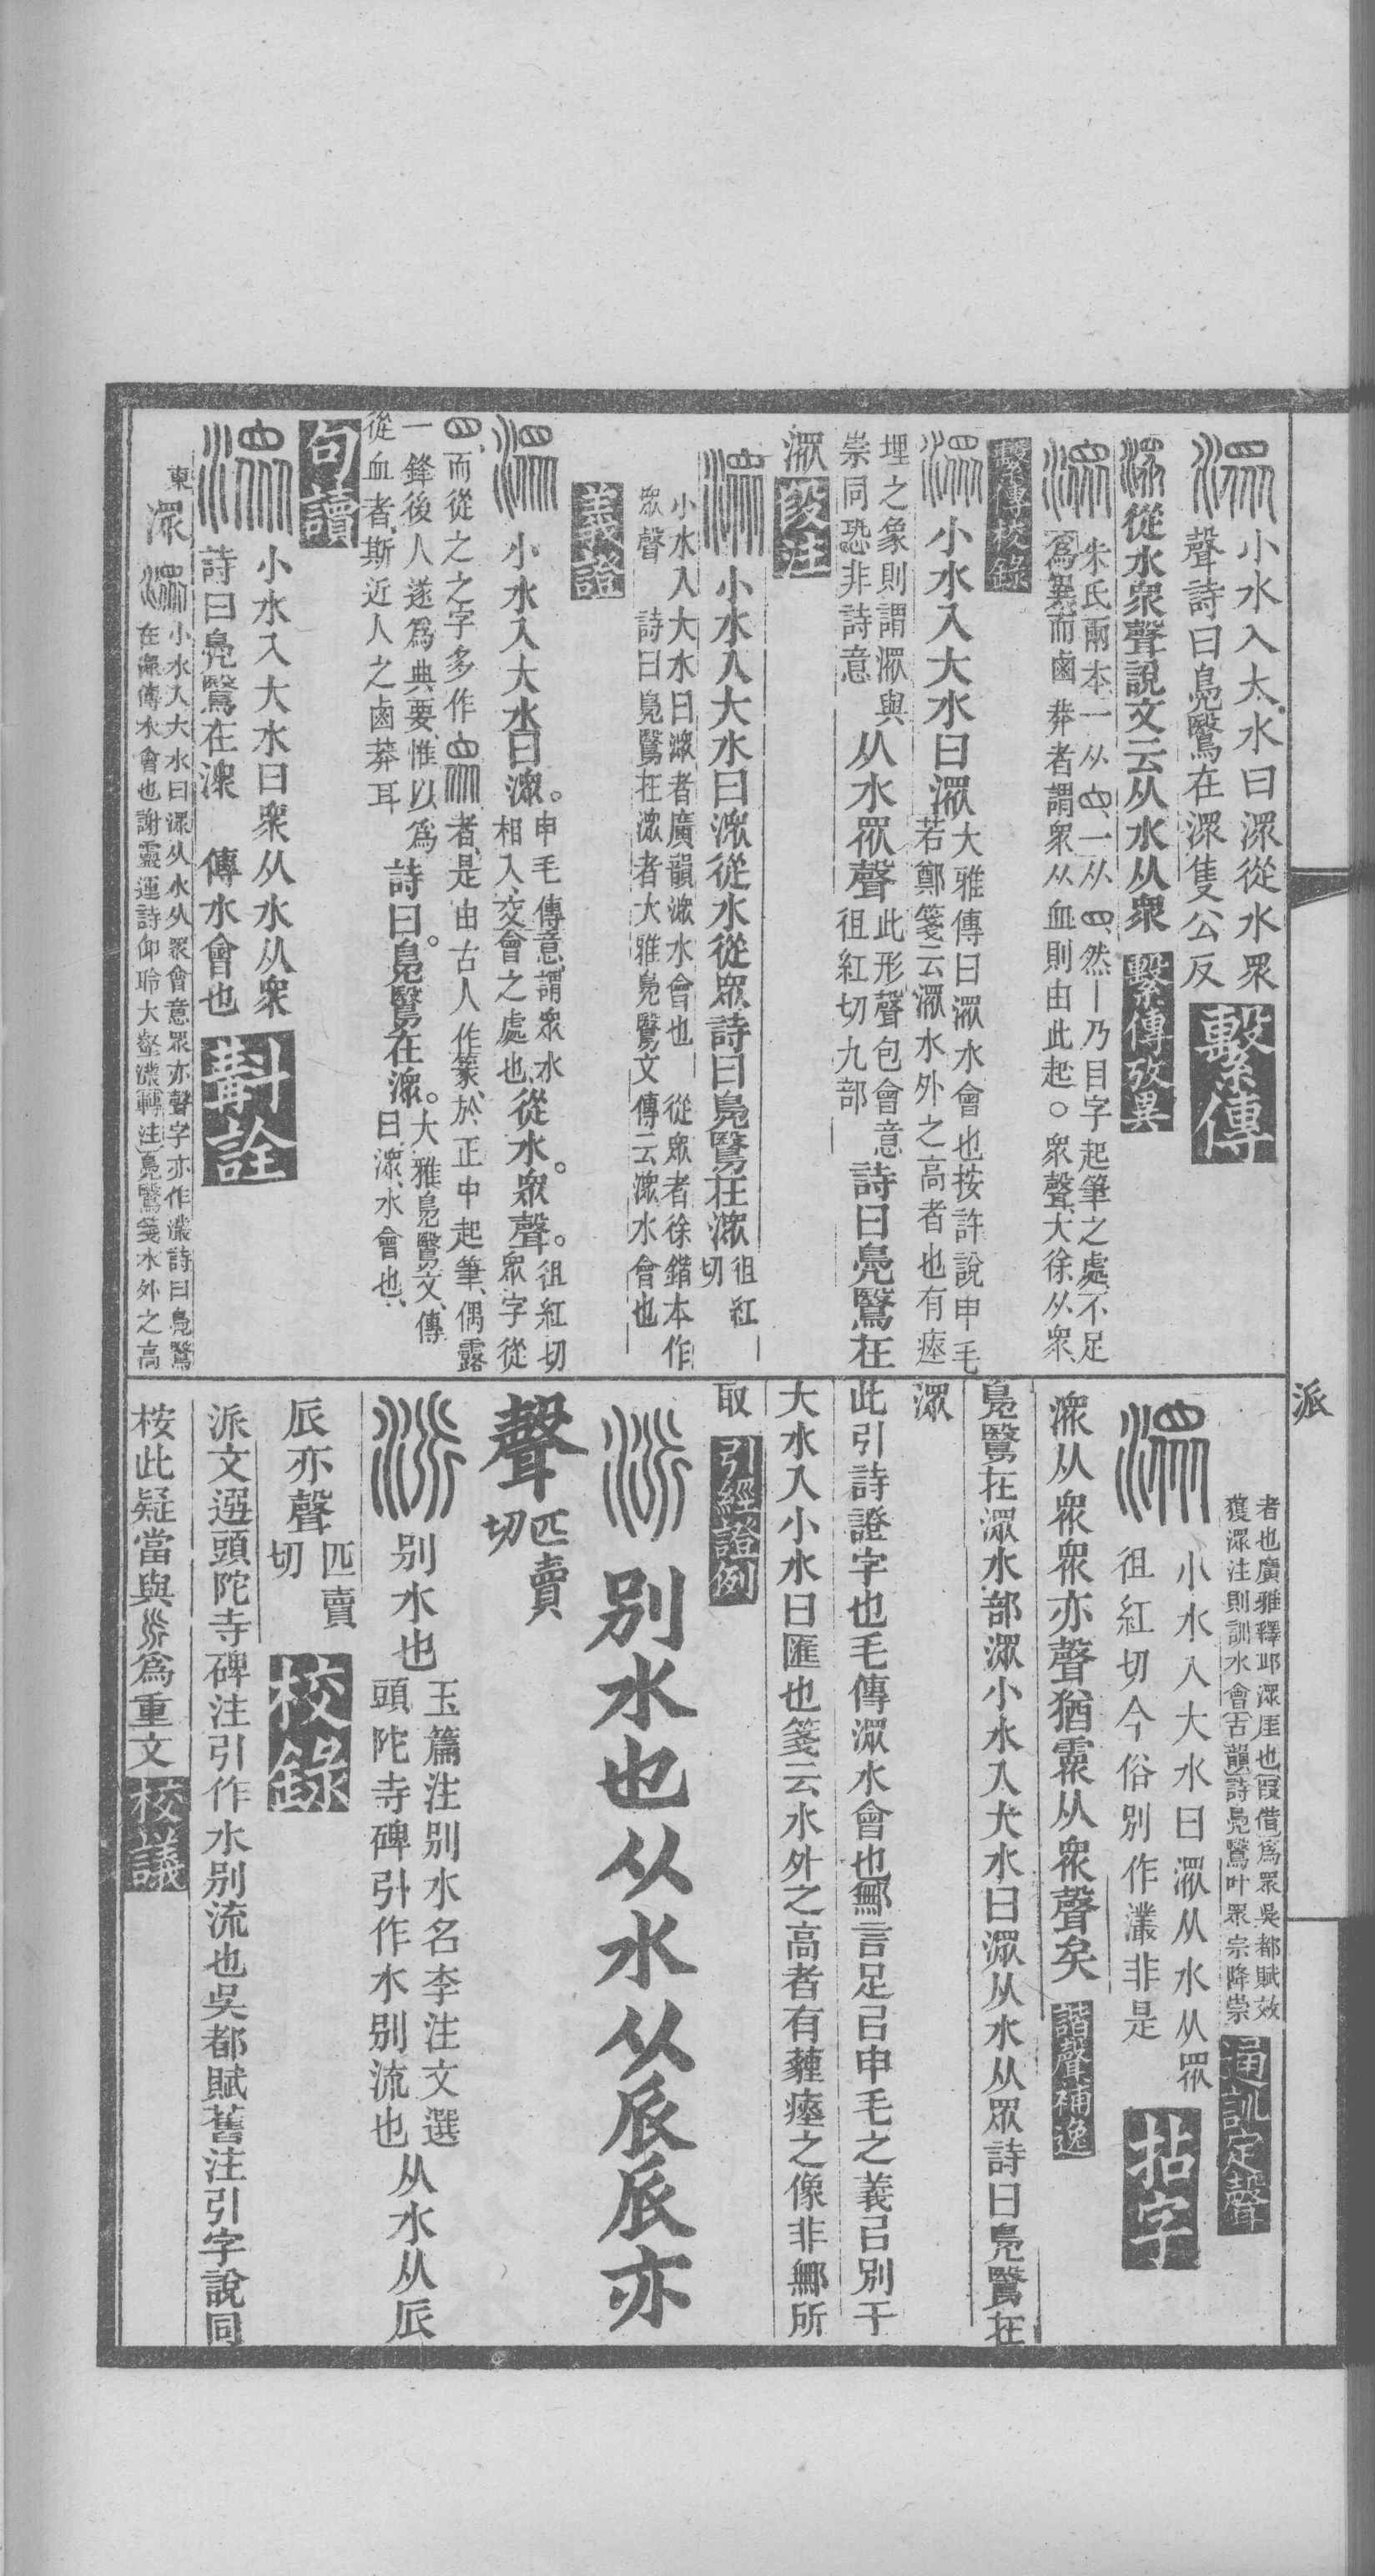 小水入大水曰潀從水眾
聲詩曰鳧鷖在潀隻公反 繫傳
潀從水眾聲說文云从水从眾 繫傳攷異
朱氏兩本一从血一从罒然丨乃目字起筆之處不足
為異而鹵莽者謂眾从血則由此起○眾聲大徐从眾
繫傳校錄
小水入大水曰潀
大雅傳曰潀水會也按許說申毛
若鄭箋云潀水外之高者也有瘞
埋之象則謂潀與
崇同恐非詩意
从水眾聲
此形聲包會意
徂紅切九部
詩曰鳧鷖在
潀 段注
小水入大水曰潀從水從眾詩曰鳧鷖在潀
徂紅
切
小水入大水曰潀者廣韻潀水會也 從眾者徐鍇本作
眾聲 詩曰鳧鷖在潀者大雅鳧鷖文傳云潀水會也
義證
小水入大水曰潀
申毛傳意謂眾水
相入交會之處也
從水眾聲
徂紅切
眾字從
罒而從之之字多作者是由古人作篆於正中起筆偶露
一鋒後人遂爲典要惟以爲
從血者斯近人之鹵莽耳
詩曰鳧鷖在潀
大雅鳧鷖文傳
曰潀水會也
句讀
小水入大水曰眾从水从眾
詩曰鳧鷖在潀 傳水會也 斠詮
東 潀
小水入大水曰潀从水从眾會意眾亦聲字亦作灇詩曰鳧鷖
在潀傳水會也謝靈運詩仰聆大壑灇轉注鳧鷖箋水外之高
派
者也廣雅釋邱潀厓也叚借爲眾吳都賦效
獲潀注則訓水會古韻詩鳧鷖叶眾宗降崇
通訓定聲
小水入大水曰潀从水从眾
徂紅切今俗別作灇非是 拈字
潀从眾眾亦聲猶霥从眾聲矣 諧聲補逸
鳧鷖在潀水部潀小水入大水曰潀从水从眾詩曰鳧鷖在
潀
此引詩證字也毛傳潀水會也鄦言足㠯申毛之義㠯別于
大水入小水曰匯也箋云水外之高者有薶瘞之像非鄦所
取 引經證例
別水也从水从𠂢𠂢亦
聲
匹賣
切
別水也
玉篇注別水名李注文選
頭陀寺碑引作水別流也
从水从𠂢
𠂢亦聲
匹賣
切
校錄
派文選頭陀寺碑注引作水別流也吳都賦舊注引字說同
桉此疑當與𠂢爲重文 校議